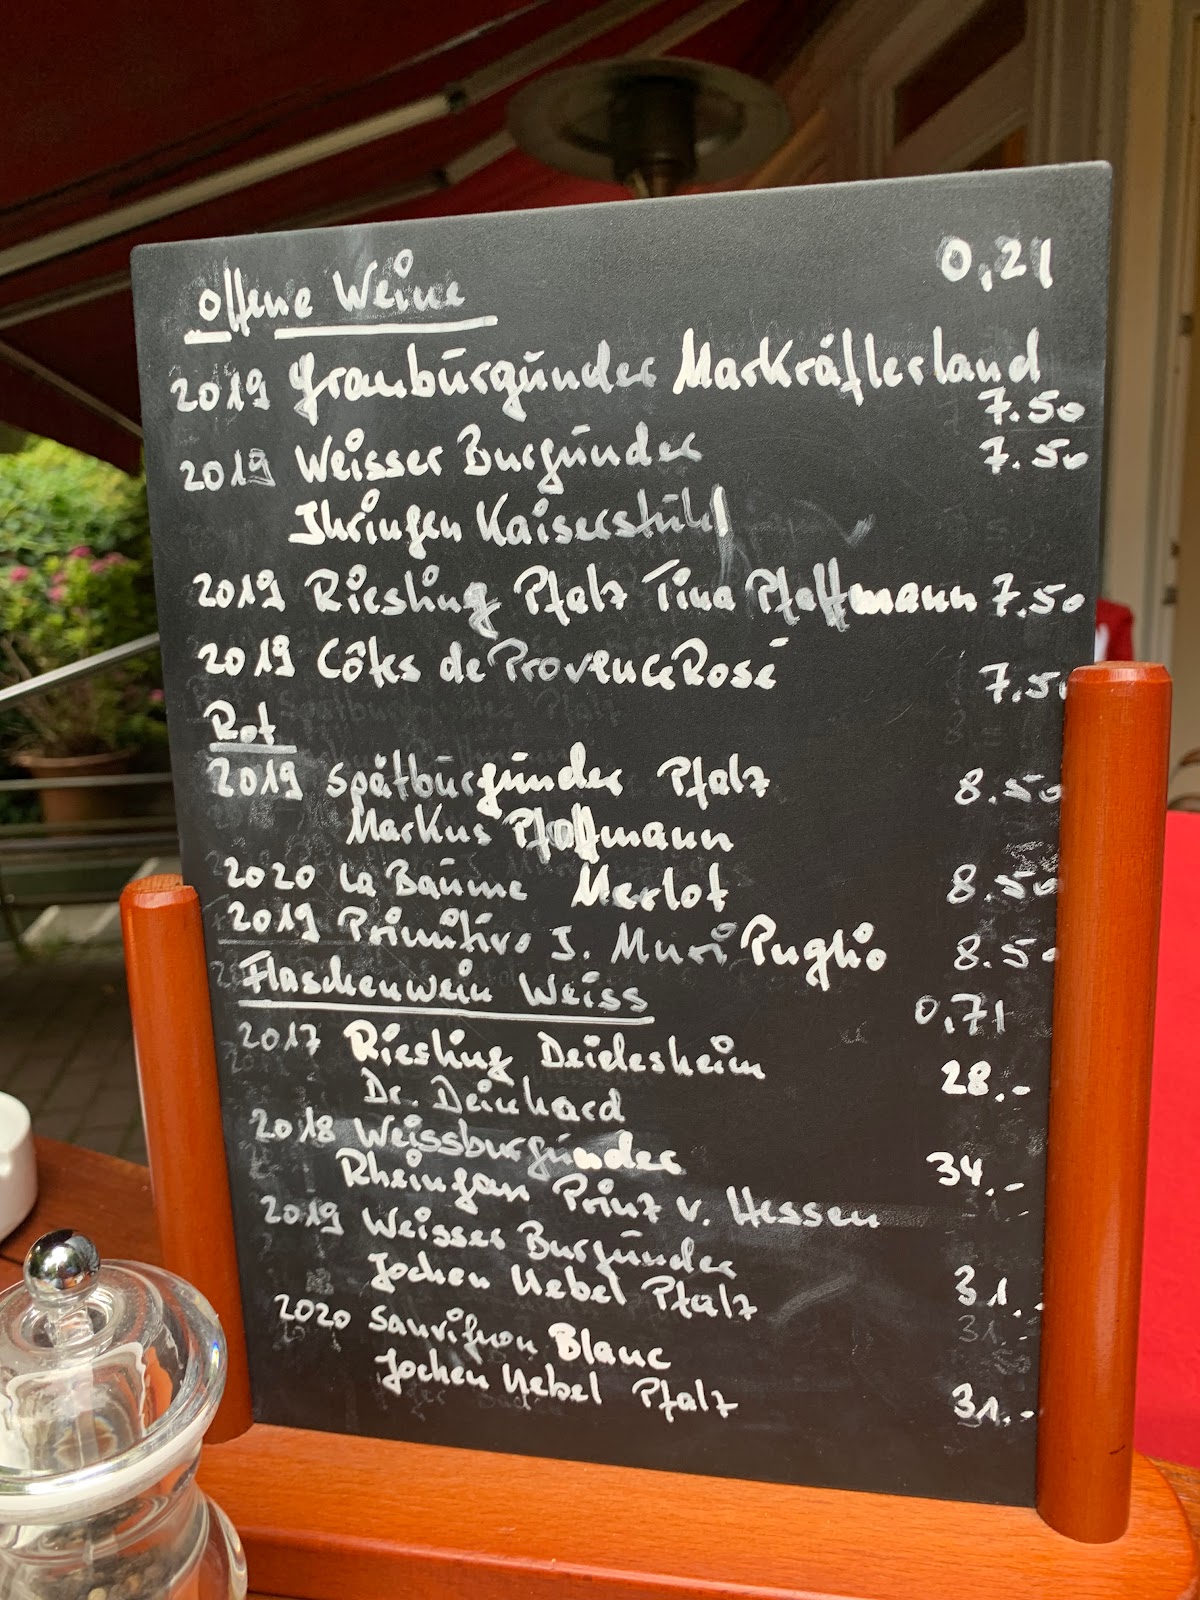 offene Weine 0,2l
2019 Grauburgunder Markräflerland
7.50
2019 Weisser Burgunder 7.50
Ihringen Kaiserstuhl
2019 Riesling Pfalz Tina Pfaffmann 7.50
2019 Côtes de Provence Rosé 7.50
Rot
2019 Spätburgunder Pfalz 8.50
Markus Pfaffmann
2020 La Baume Merlot 8.50
2019 Primitivo I. Muri Puglio 8.50
Flaschenwein Weiss 0,7l
2017 Riesling Deidesheim 28.-
Dr. Deinhard
2018 Weissburgunder 34.-
Rheingau Prinz v. Hessen
2019 Weisses Burgunder
Jochen Nebel Pfalz 31.-
2020 Sauvignon Blanc
Jochen Nebel Pfalz 31.-